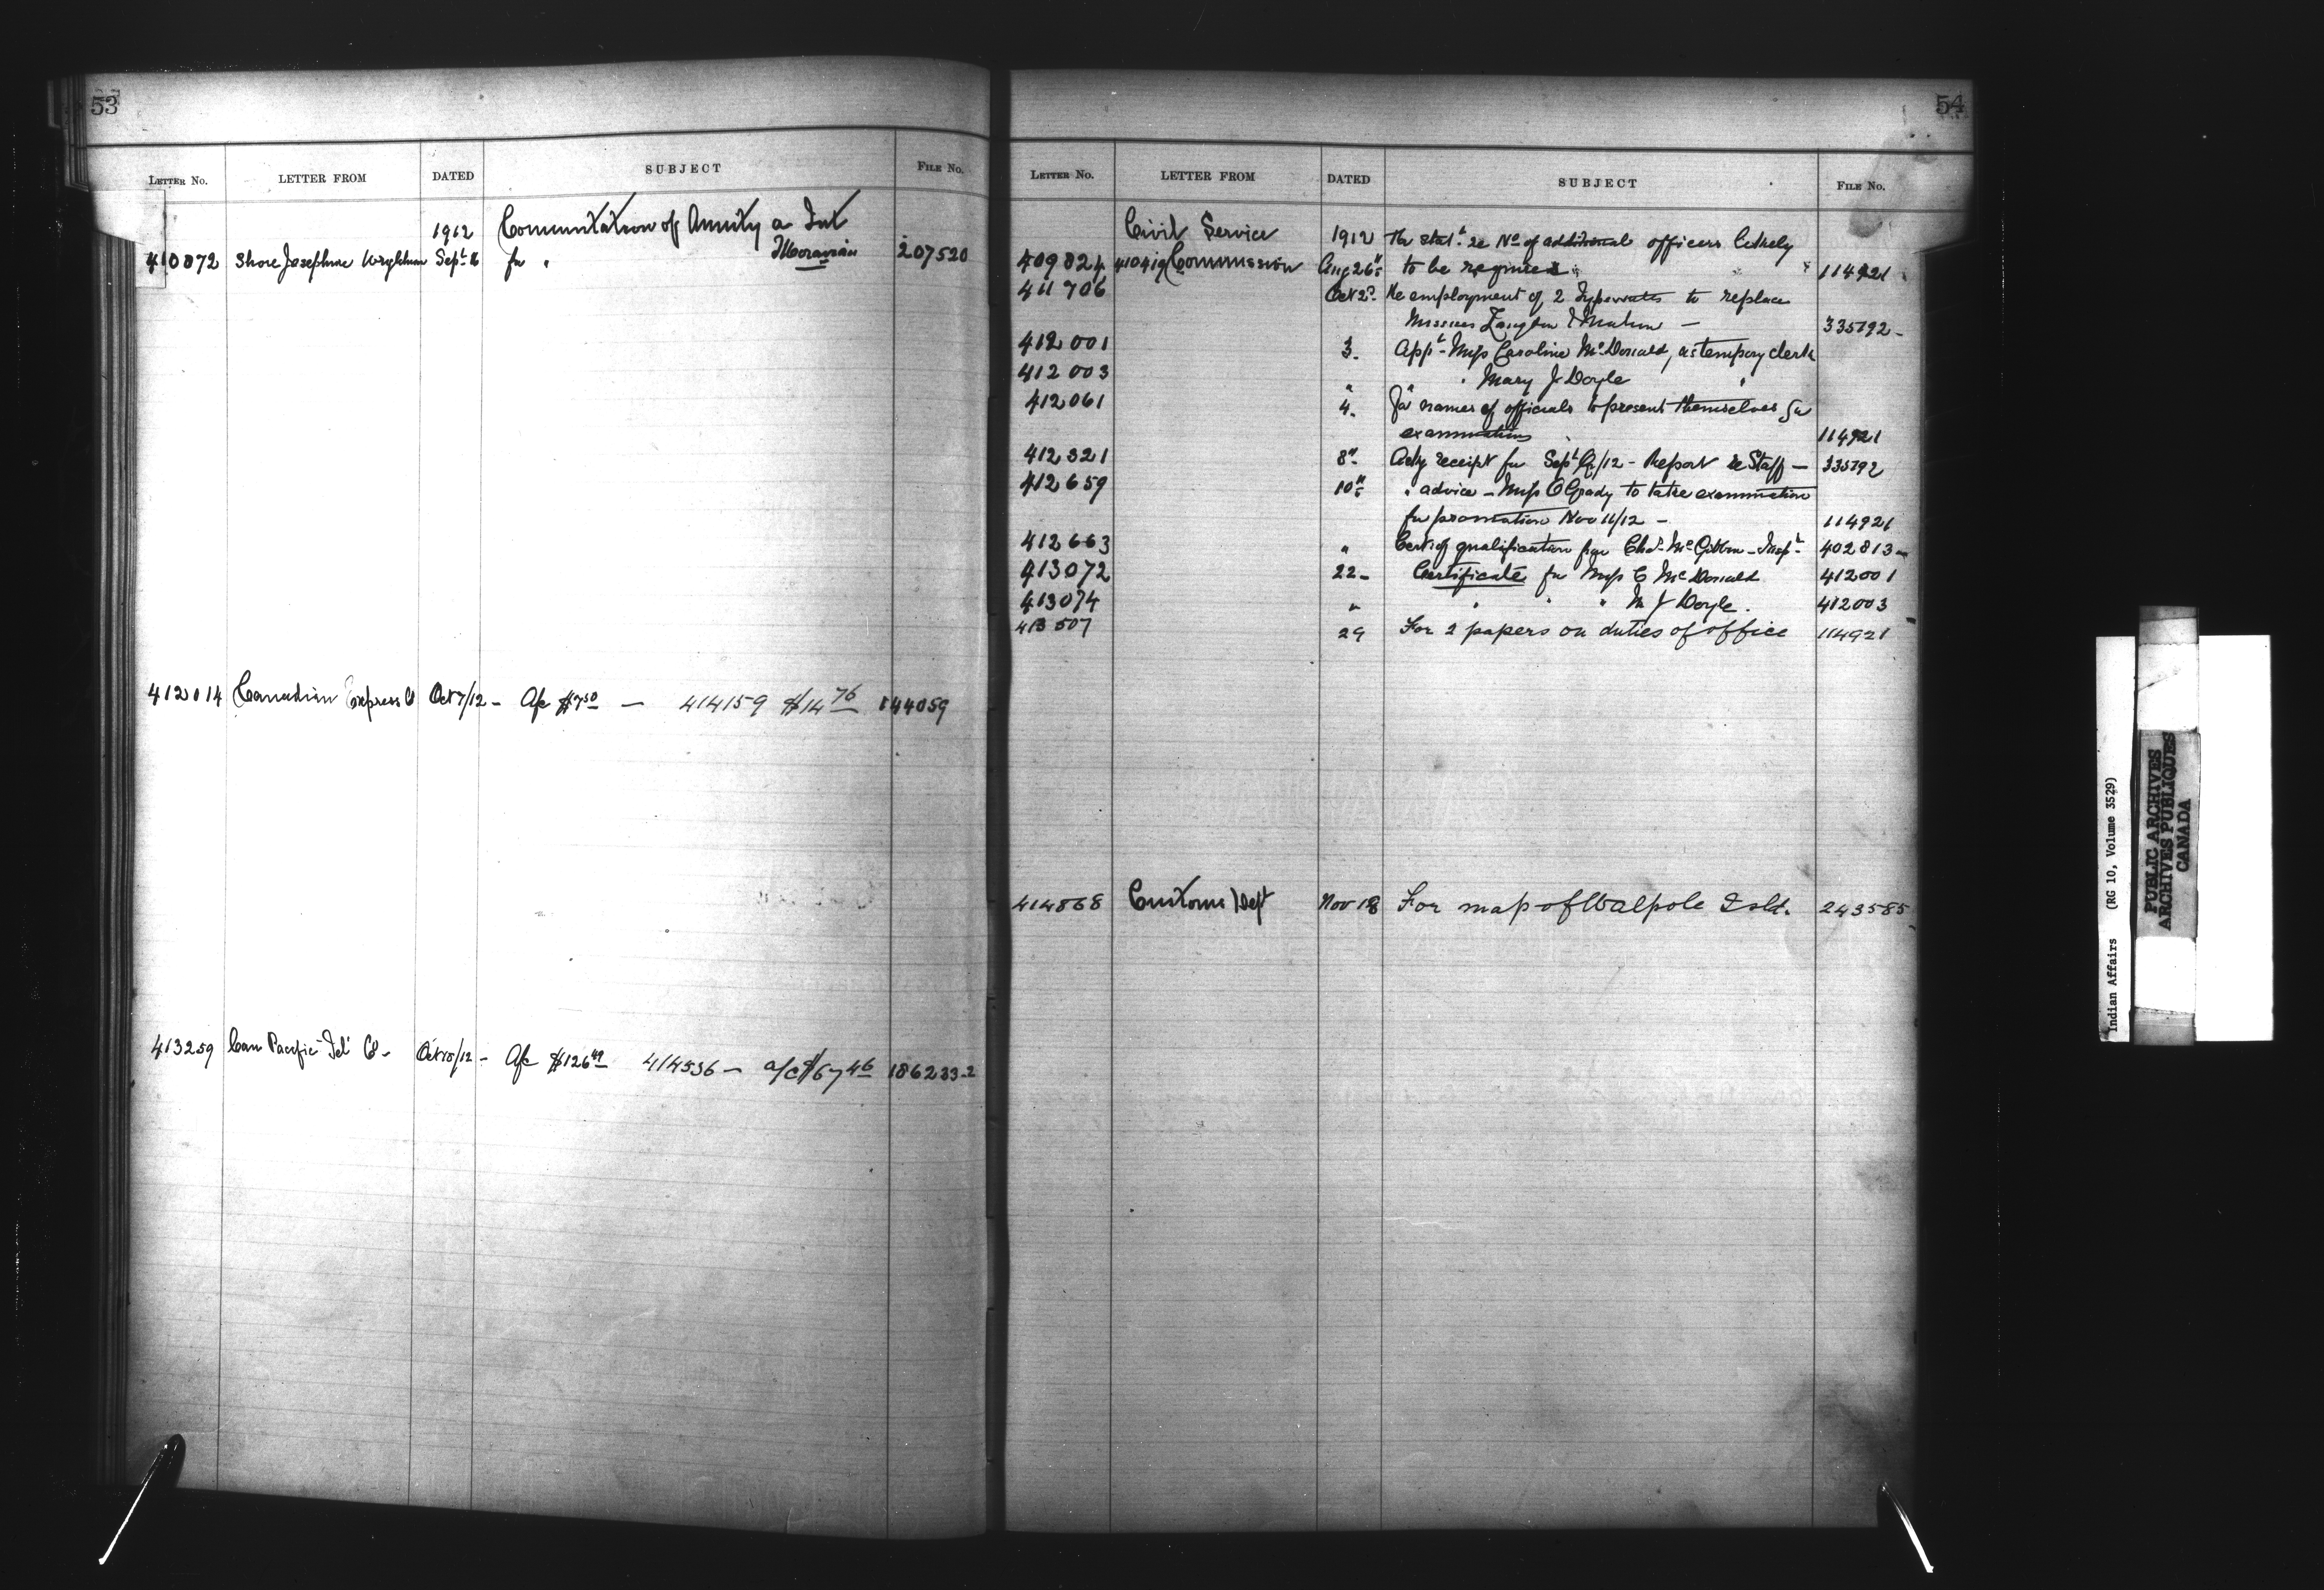 53
LETTER NO. LETTER FROM DATED SUBJECT FILE NO.
1912 Commutation of Annuity a Int
410872 Shore Josephine Sept 16 for " Moravian 207520
412014 Canadian Express Co Oct 7/12 - A/c $7.50 — 414159 $14.76 144059
413259 Can Pacific Tel Co - Oct 15/12 - A/c $126.49 414536 - a/c $67.46 186233-2
54
LETTER NO. LETTER FROM DATED SUBJECT FILE NO.
Civil Service 1912 stat. re No of additional officers likely
409824 410419 Commission Aug 26" to be required " " 114921
411706 Oct 2d. Re employment of 2 Typewrites to replace
Misses — 335792 -
412001 3. Appt - Miss Caroline McDonald, as tempory clerk
412003 " " " Mary J Doyle "
412061 4. For names of officials to present themselves for
examinations 114921
412321 8" Ackg receipt for Sept /12 - Report re Staff — 335792
412659 10" " advice - Miss O'Grady to take examination
for promotion Nov 11/12 - 114921
412663 " Cert of qualification for Chas. McGibbon - Inspt. 402813
413072 22 - Certificate for Miss C McDonald 412001
413074 " " " " M J Doyle. 412003
413507 29 For 2 papers on duties of office 114921
414868 Customs Dept Nov 18 For map of Walpole Isld. 243585
Indian Affairs (RG 10, Volume 3529)
PUBLIC ARCHIVES
ARCHIVES PUBLIQUES
CANADA